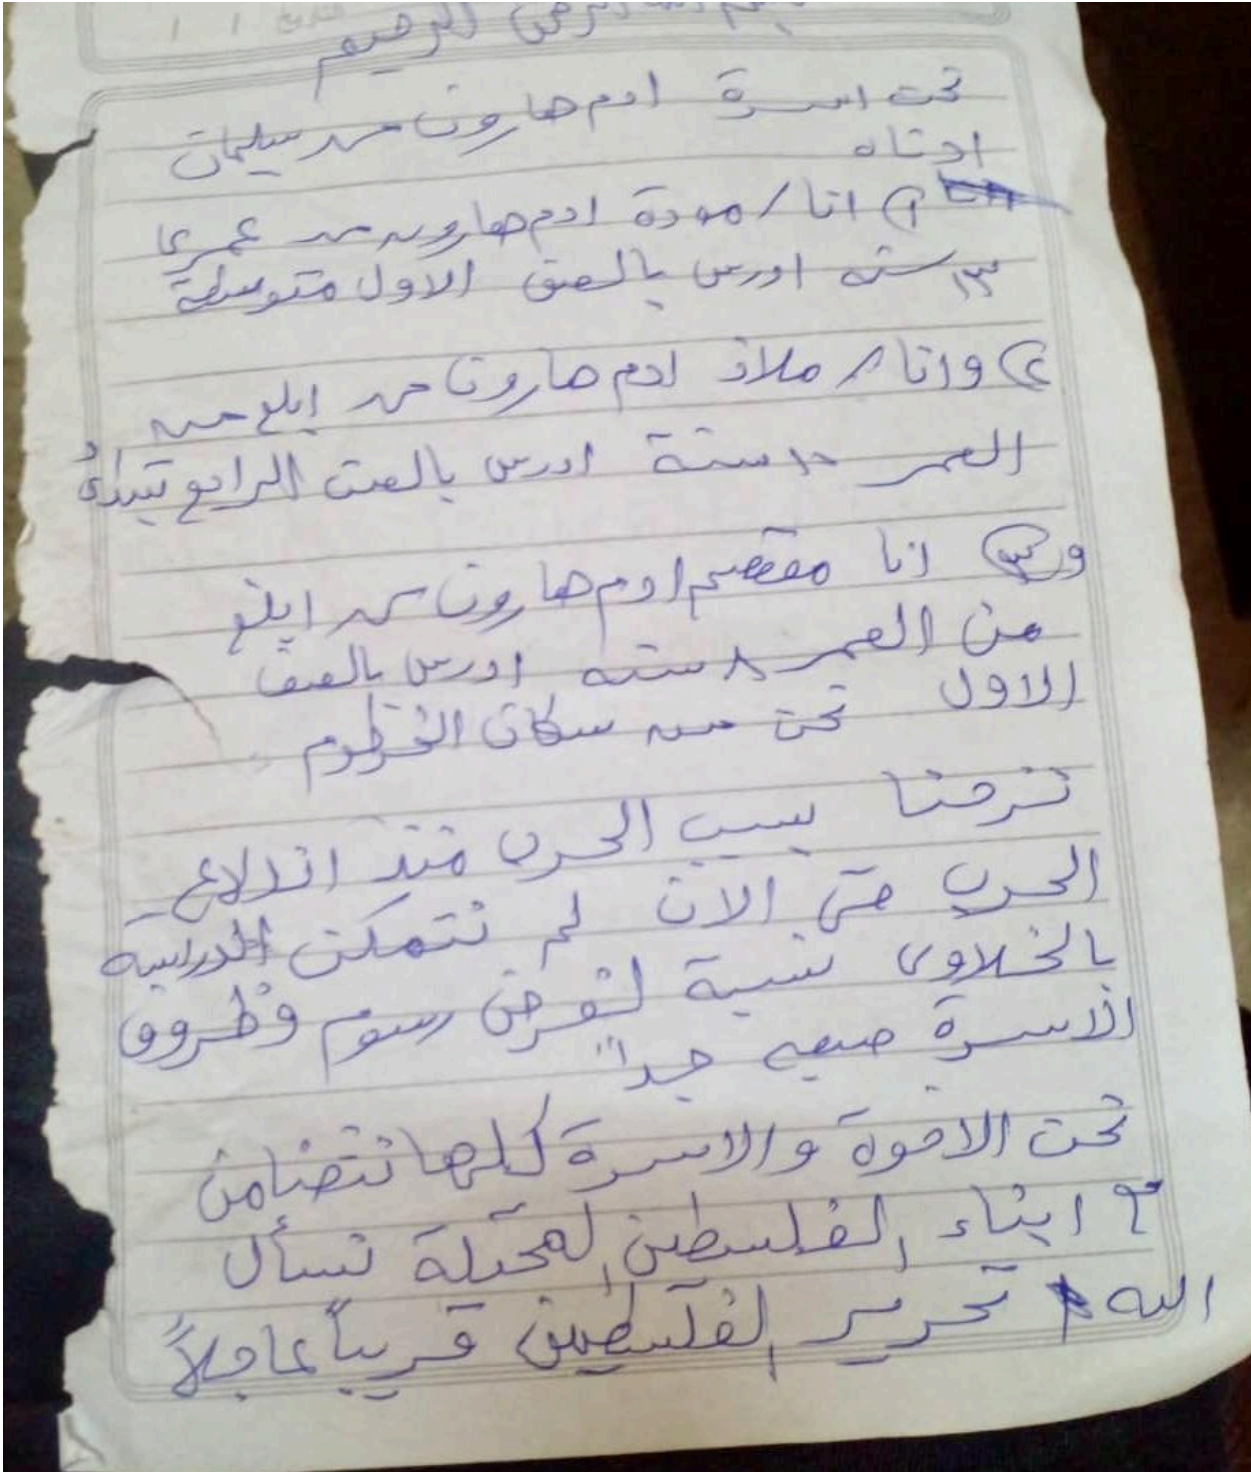 بسم الله الرحمن الرحيم
نحن اسرة ادم هارون محمد سليمان
ادناه
١) انا / مودة ادم هارون محمد عمري
١٣ سنه ادرس بالصف الاول متوسطة
٢) وانا / ملاذ ادم هارون محمد ابلغ من
العمر ١٠ سنة ادرس بالصف الرابع
و ٣) انا ادم هارون محمد ابلغ
من العمر ٨ سنه ادرس بالصف
الاول نحن من سكان الخرطوم
نزحنا بسبب الحرب منذ اندلاع
الحرب حتى الان لم نتمكن الدراسه
بالخلاوى نسبة لفرض رسوم وظروف
الاسرة صعبه جداً
نحن الاخوة والاسرة كلها نتضامن
مع ابناء الفلسطين لمحتلة نسأل
الله تحرير الفلسطين قريباً عاجلاً